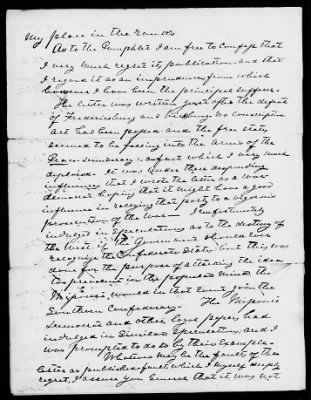 my place in the ranks
As to the Pamphlet I am free to confess that
I very much regret its publication and that
I regard it as an imprudence from which
however I have been the principal sufferer.
The letter was written just after the defeat
of Fredericksburg and Vicksburg No conscription
act had been passed and the free states
seemed to be passing into the arms of the
Peace democracy. a fact which I very much
deplored. It was under these
influences that I wrote the letter as a war
democrat hoping that it might have a good
influence in rallying that party to a vigorous
prosecution of the war — I unfortunately
indulged in speculations as to the destiny of
the West if the Government should ever
recognize the Confederate States, but this was
done for the purpose of attacking the idea
in the popular mind, the
would in that event join the
Southern Confederacy. The Missouri
Democrat and other loyal papers had
indulged in similar speculation, and I
was prompted to do so by their example—
Whatever may be the faults of the
letter as published faults which I myself deeply
regret, I assure you General that it was not